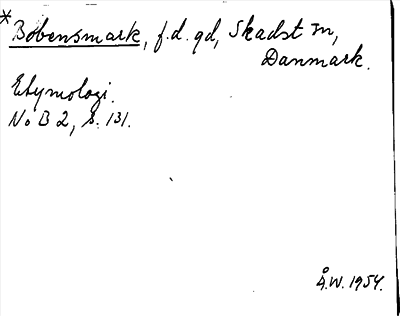 *Bobensmark, f.d. gd, Skadst sn,
Danmark.
Etymologi.
No B 2, s. 131.
Å.W. 1954.